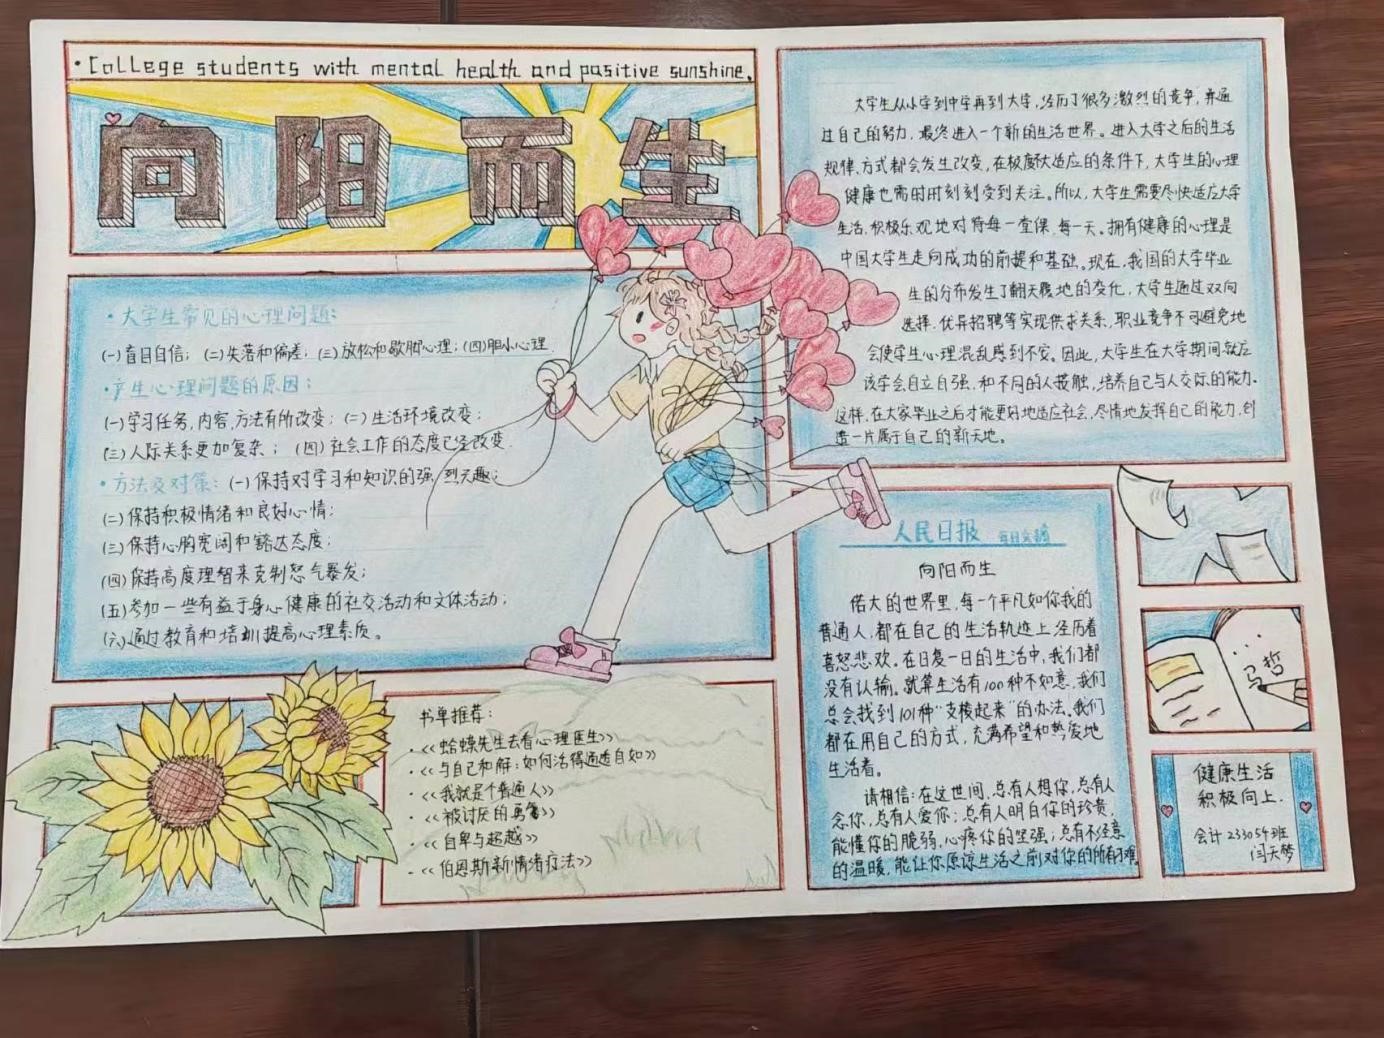 ·College students with mental health and pasitive sunshine.
向阳而生
·大学生常见的心理问题:
(一)盲目自信;(二)失落和偏差;(三)放松和歇脚心理;(四)胆小心理.
·产生心理问题的原因:
(一)学习任务,内容,方法有所改变;(二)生活环境改变;
(三)人际关系更加复杂;(四)社会工作的态度已经改变.
·方法及对策:(一)保持对学习和知识的强烈兴趣;
(二)保持积极情绪和良好心情;
(三)保持心胸宽阔和豁达态度;
(四)保持高度理智来克制怒气暴发;
(五)参加一些有益于身心健康的社交活动和文体活动;
(六)通过教育和培训提高心理素质。
书单推荐:
·<<蛤蟆先生去看心理医生>>
·<<与自己和解:如何活得通透自如>>
·<<我就是个普通人>>
·<<被讨厌的勇气>>
·<<自卑与超越>>
·<<伯恩斯新情绪疗法>>
大学生从小学到中学再到大学,经历了很多激烈的竞争,并通
过自己的努力,最终进入一个新的生活世界。进入大学之后的生活
规律,方式都会发生改变,在极度不适应的条件下,大学生的心理
健康也需时时刻刻受到关注。所以,大学生需要尽快适应大学
生活,积极乐观地对待每一堂课,每一天。拥有健康的心理是
中国大学生走向成功的前提和基础。现在,我国的大学毕业
生的分布发生了翻天覆地的变化,大学生通过双向
选择,优异招聘等实现供求关系,职业竞争不可避免地
会使学生心理混乱感到不安。因此,大学生在大学期间就应
该学会自立自强,和不同的人接触,培养自己与人交际的能力.
这样,在大家毕业之后才能更好地适应社会,尽情地发挥自己的能力,创
造一片属于自己的新天地。
人民日报
向阳而生
偌大的世界里,每一个平凡如你我的
普通人,都在自己的生活轨迹上经历着
喜怒悲欢。在日复一日的生活中,我们都
没有认输。就算生活有100种不如意,我们
总会找到101种"支棱起来"的办法。我们
都在用自己的方式,充满希望和热爱地
生活着。
请相信:在这世间,总有人想你,总有人
念你,总有人爱你;总有人明白你的珍贵,
能懂你的脆弱,心疼你的坚强;总有不经意
的温暖,能让你原谅生活之前对你的所有刁难
马哲
健康生活
积极向上.
会计233054班
闫天梦